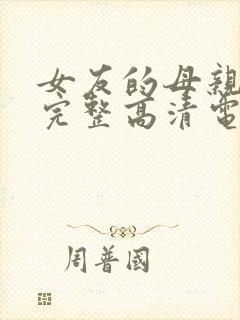 女友的母親
完整高清電
周普國